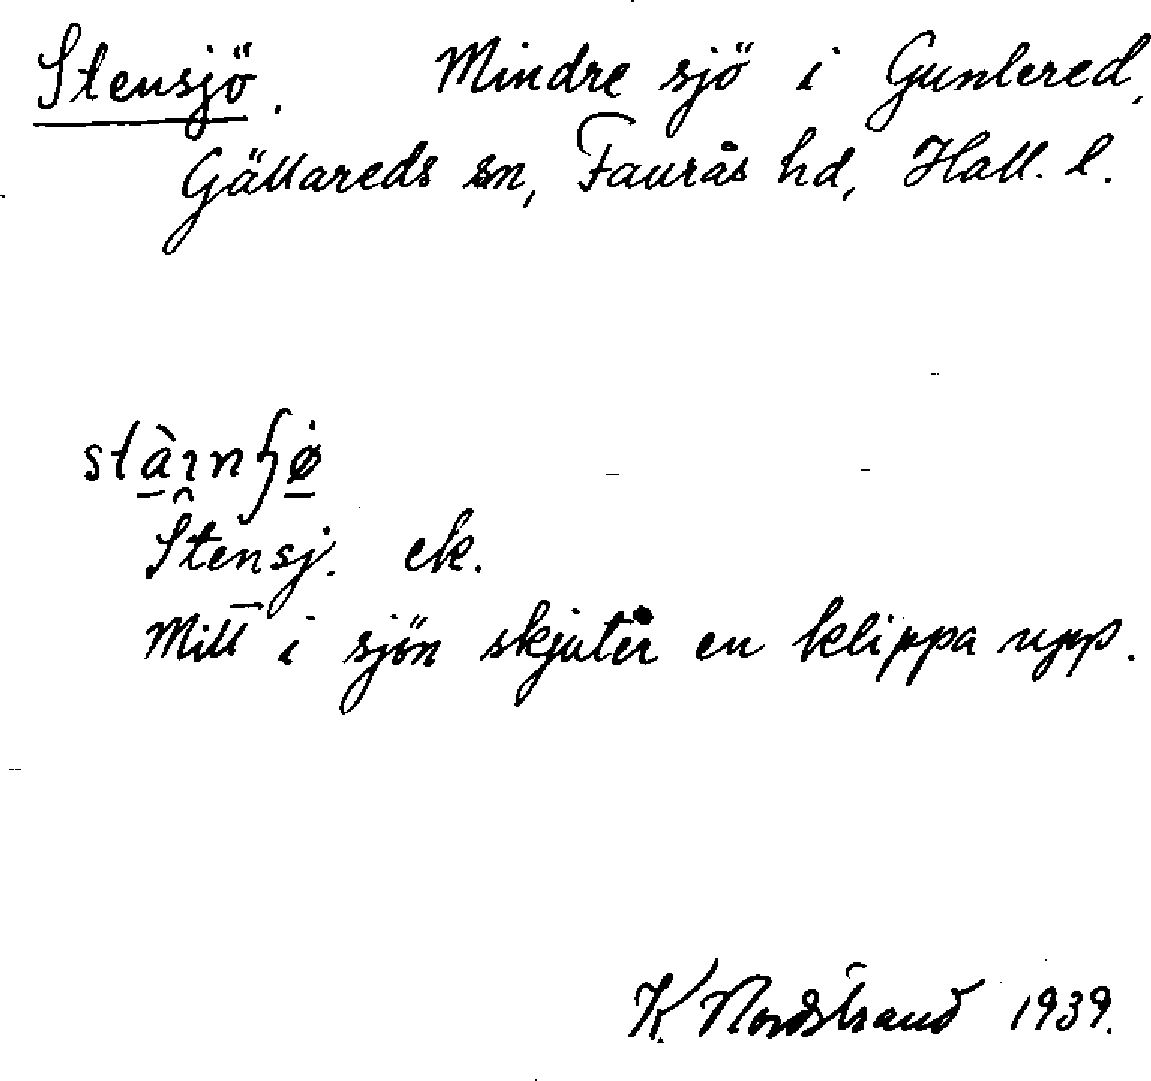 Stensjö. Mindre sjö i Gunnered,
Gällareds sn, Faurås hd, Hall. l.
Stensj. ek.
Mitt i sjön skjuter en klippa upp.
K. Nordstrand 1939.